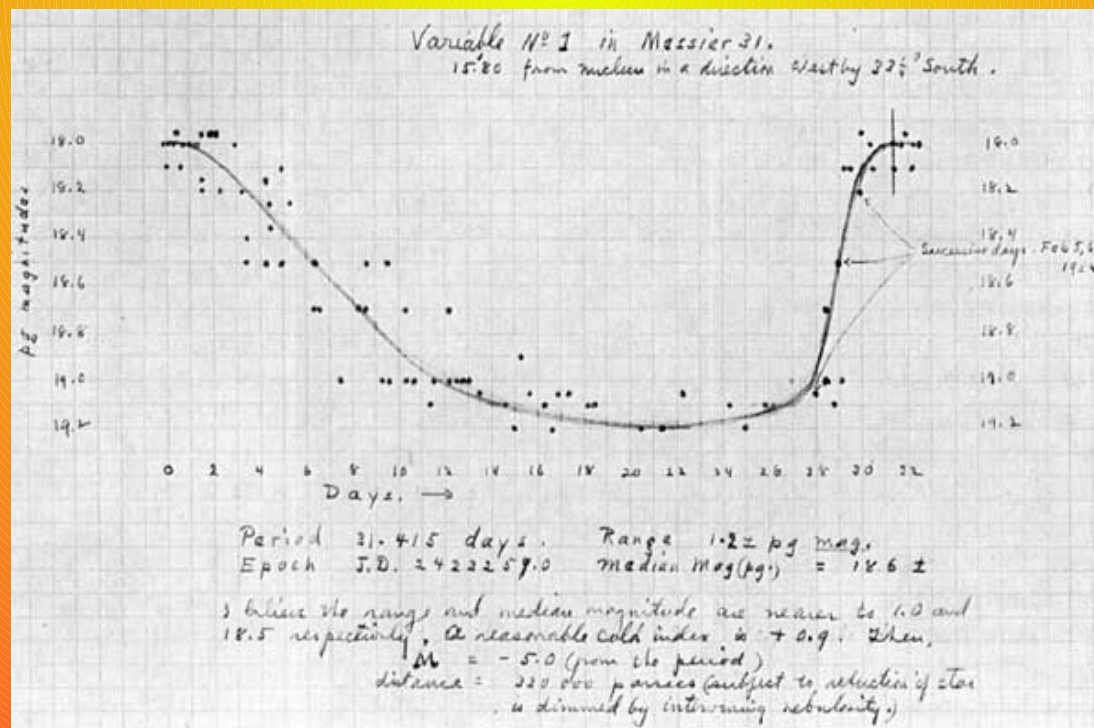 Variable Nº 1 in Messier 31.
15'.80 from nucleus in a direction West by South.
18.0 18.0
18.2 18.2
18.4 18.4
18.6 18.6
18.8 18.8
19.0 19.0
19.2 19.2
pg magnitudes
Successive days. Feb 5, 6
0 2 4 6 8 10 12 14 16 18 20 22 24 26 28 30 32
Days. →
Period 31.415 days. Range 1.2± pg mag.
Epoch J.D. 2423259.0 Median Mag (pg.) = 18.6 ±
I believe the range and median magnitude are nearer to 1.0 and
18.5 respectively. A reasonable index is + 0.9. Then,
M = - 5.0 (from the period)
distance = 320 000 parsecs (subject to reduction if star
is dimmed by intervening nebulosity.)